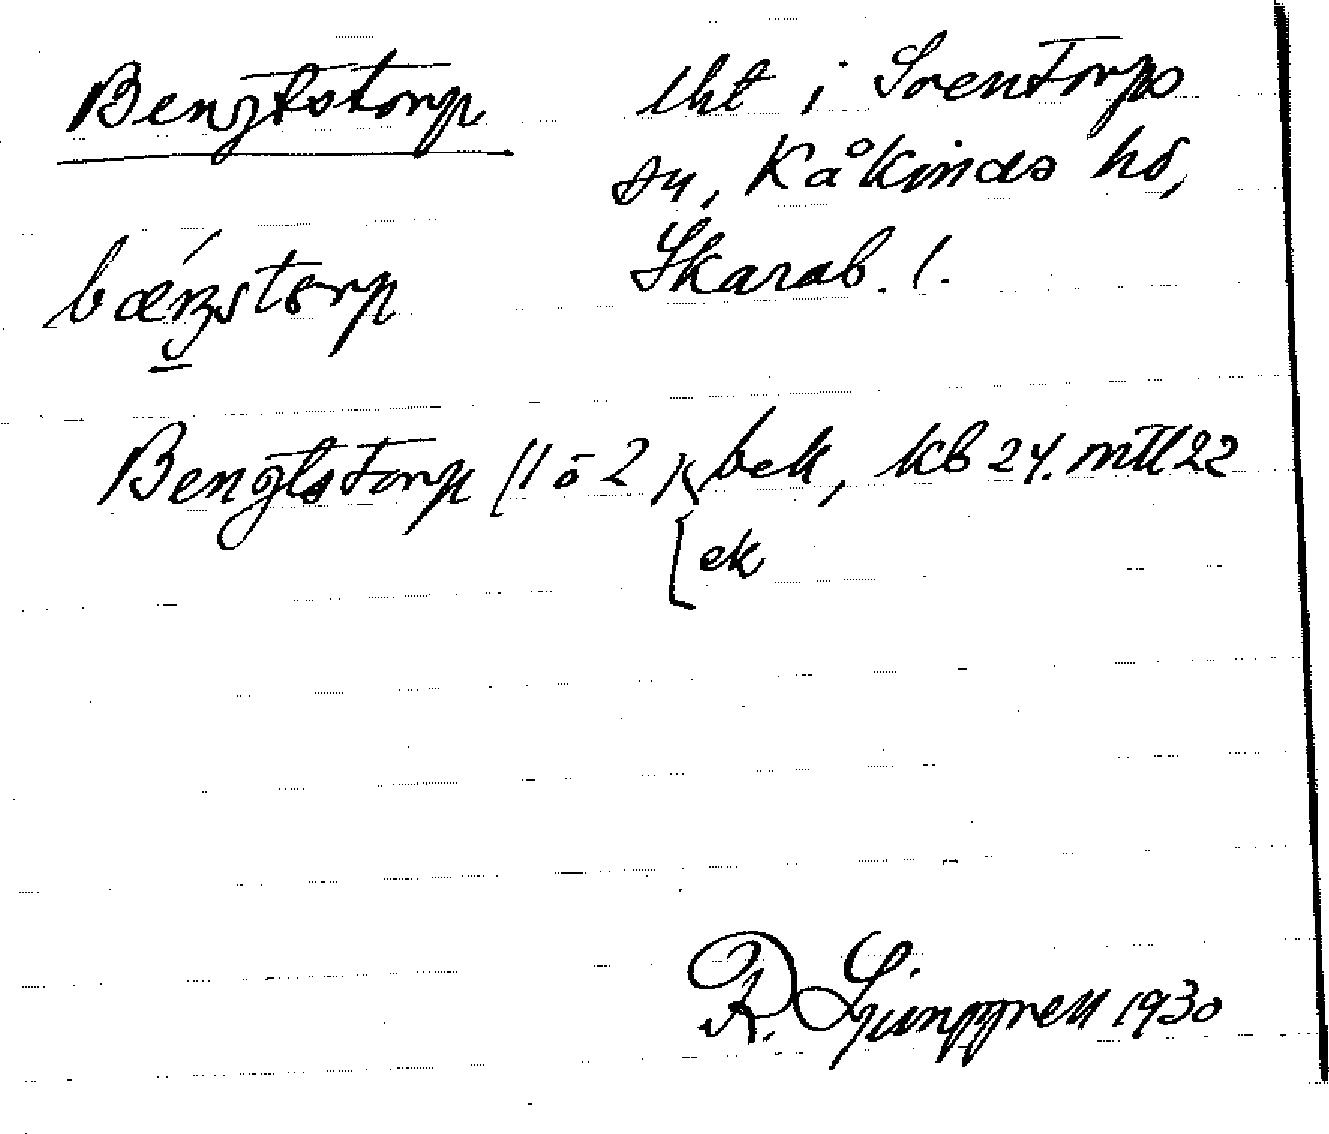 Bengtstorp uht i Sventorps
sn, Kåkinds hd,
Skarab. l.
Bengtstorp (1 o 2) bek, kb 24. mtl 22
ek
R. Ljunggren 1930